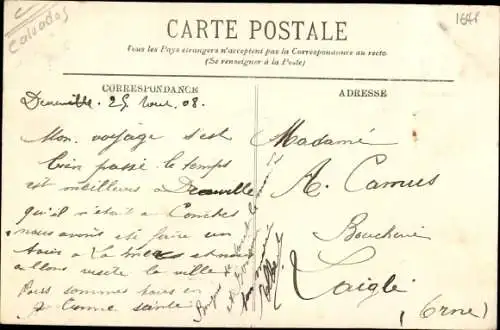 Calvados
1648
CARTE POSTALE
Tous les Pays étrangers n'acceptent pas la Correspondance au recto
(Se renseigner à la Poste)
CORRESPONDANCE
Deauville. 25 Aout 08.
Mon voyage s'est
bien passé le temps
est meilleurs a Deauville
qu'il n'était a Conches
nous avons été faire un
tour a La mer et nous
allons visité la ville
Nous sommes tous en
bonne santé
ADRESSE
Madame
A. Camus
Boucherie
Laigle
(Orne)